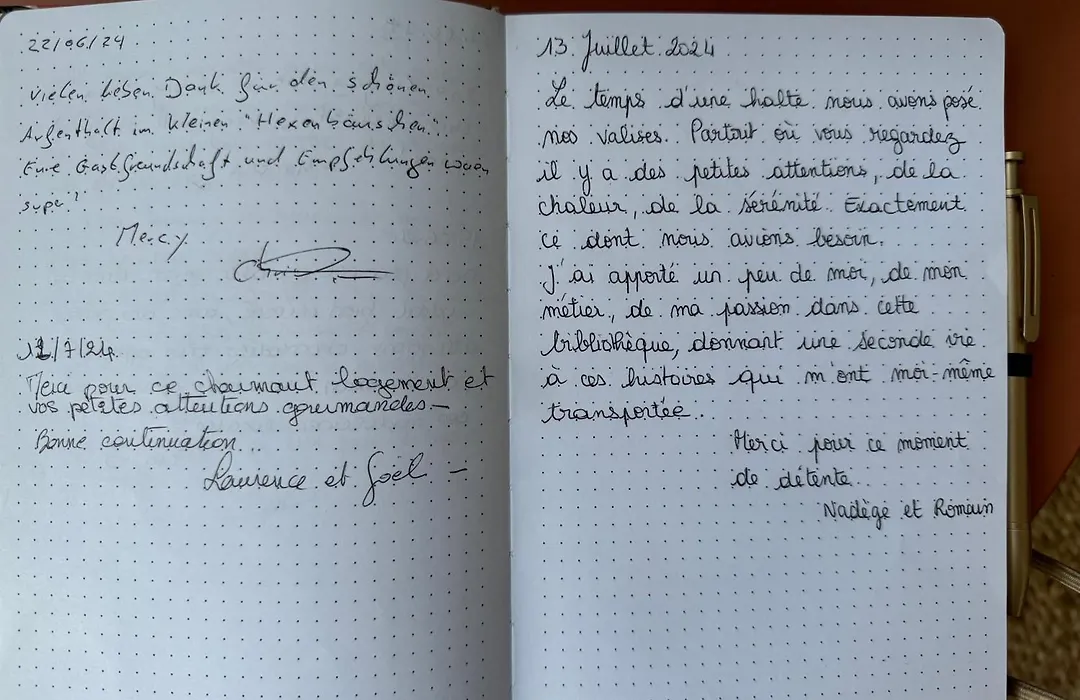 22/06/24
Vielen lieben Dank für den schönen
Aufenthalt im kleinen "Hexenhäuschen".
Eure Gastfreundschaft und Empfehlungen waren
super!
Mercy
11/7/24
Merci pour ce charmant logement et
vos petites attentions gourmandes.-
Bonne continuation...
Laurence et Joël -
13 Juillet 2024
Le temps d'une halte nous avons posé
nos valises. Partout où vous regardez
il y a des petites attentions, de la
chaleur, de la sérénité. Exactement
ce dont nous avions besoin.
J'ai apporté un peu de moi, de mon
métier, de ma passion dans cette
bibliothèque, donnant une seconde vie
à ces histoires qui m'ont moi-même
transportée.
Merci pour ce moment
de détente.
Nadège et Romain